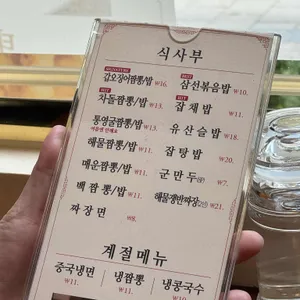 식사부
갑오징어짬뽕/밥 ₩16.
차돌짬뽕/밥 ₩13.
통영굴짬뽕/밥 ₩13.
해물짬뽕/밥 ₩11.
매운짬뽕/밥 ₩11.
백짬뽕/밥 ₩11.
짜장면 ₩8.
삼선볶음밥 ₩10.
잡채밥 ₩11.
유산슬밥 ₩18.
잡탕밥 ₩20.
군만두 ₩7.
해물쟁반짜장 ₩21.
계절메뉴
중국냉면 냉짬뽕 냉콩국수
₩11. ₩11. ₩10.